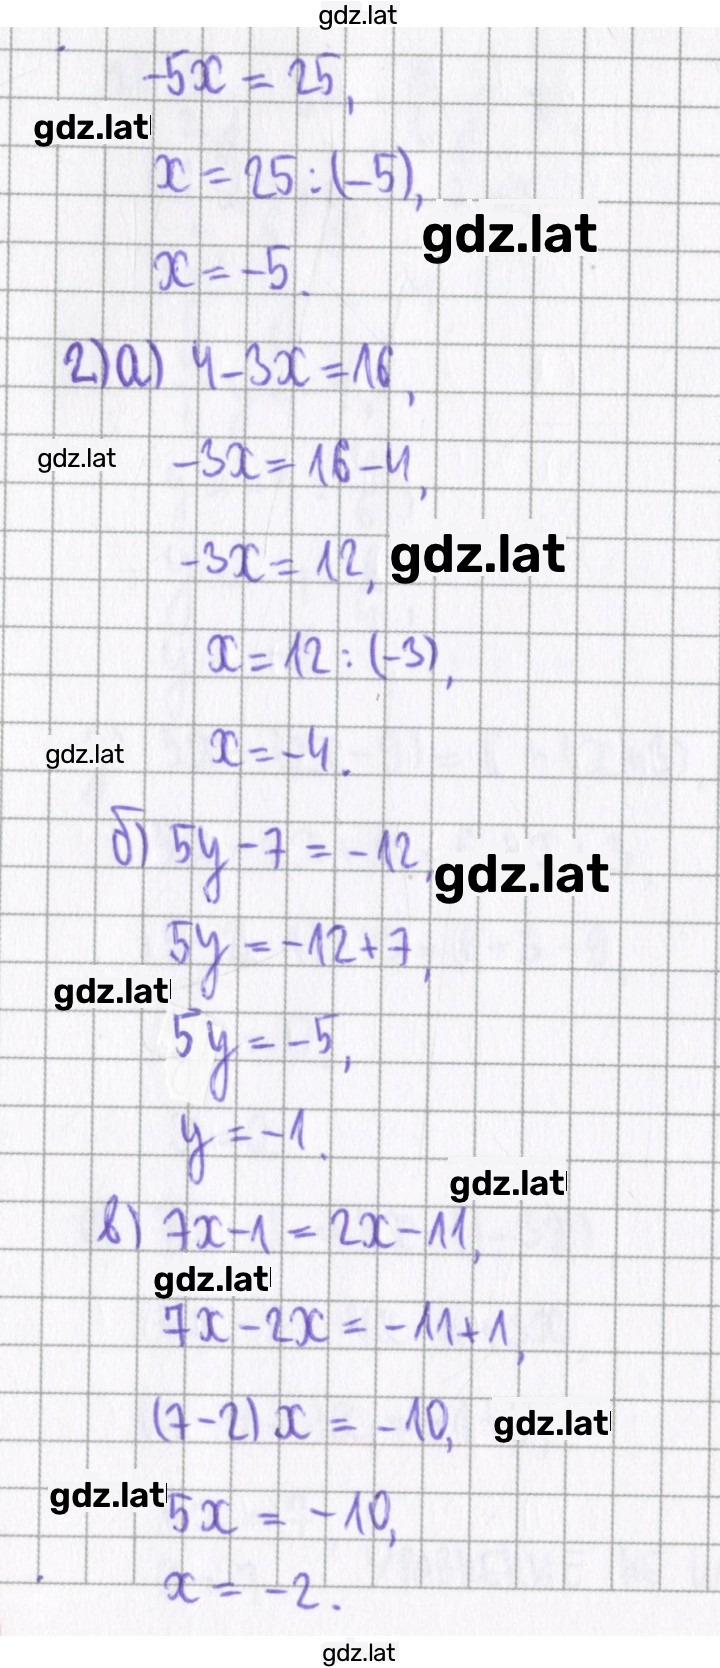 gdz.lat
-5x = 25,
gdz.lat
x = 25 : (-5),
gdz.lat
x = -5.
2) а) 4 - 3x = 16,
gdz.lat
-3x = 16 - 4,
-3x = 12, gdz.lat
x = 12 : (-3),
gdz.lat
x = -4.
б) 5y - 7 = -12,
gdz.lat
5y = -12 + 7,
gdz.lat
5y = -5,
y = -1.
gdz.lat
в) 7x - 1 = 2x - 11,
gdz.lat
7x - 2x = -11 + 1,
(7 - 2) x = -10, gdz.lat
gdz.lat
5x = -10,
x = -2.
gdz.lat